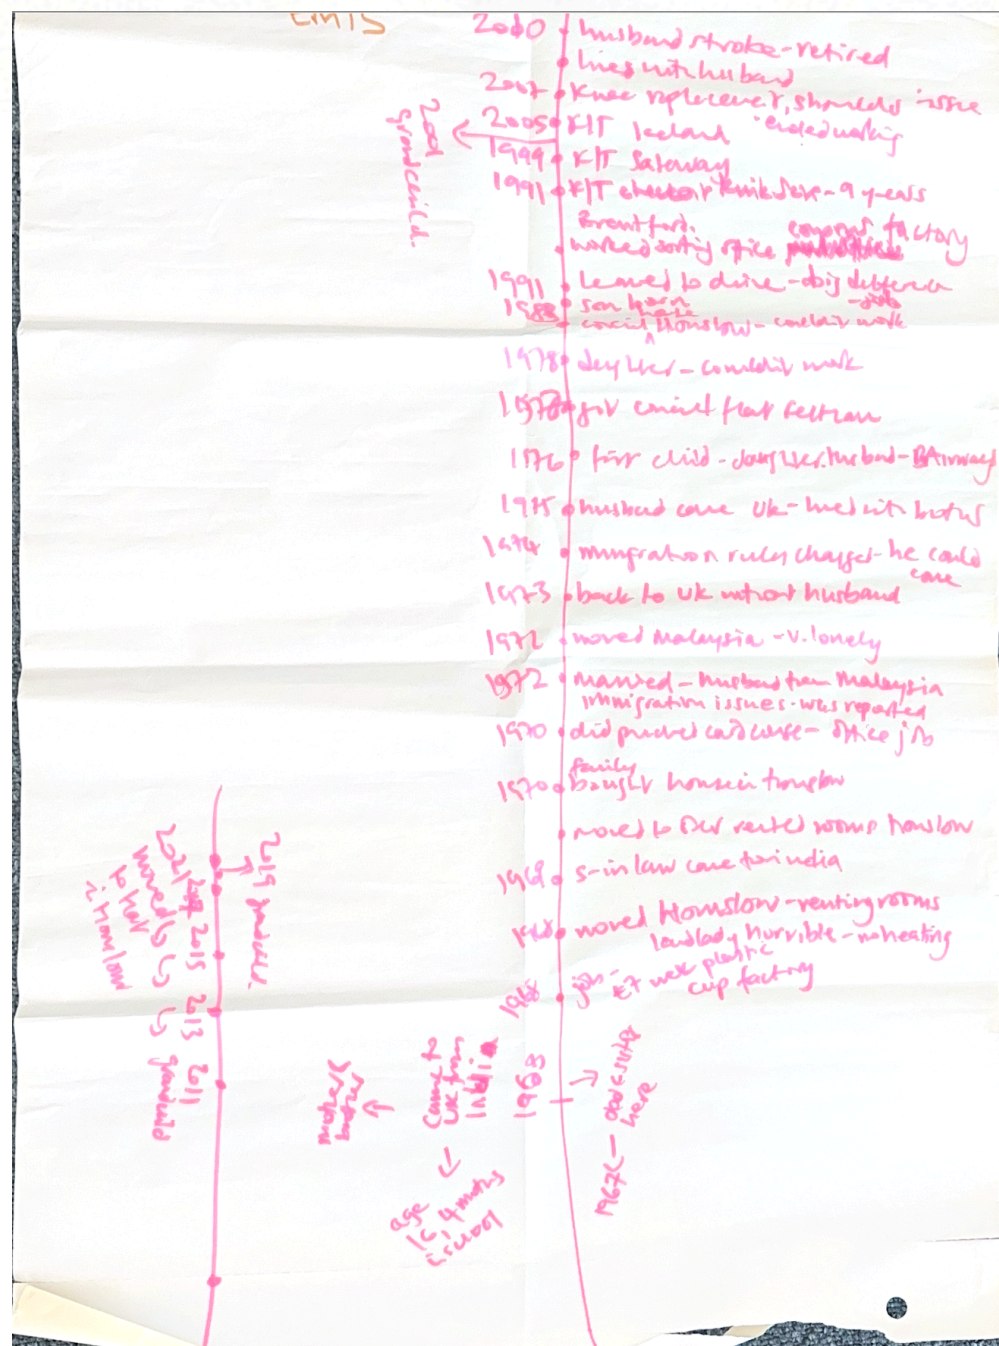 husband stroke - retired
lives with husband
2007 Knee replacement, shoulder issue
ended working
2005 P/T Iceland
1999 P/T Safeway
1991 P/T Kwik Save - 9 years
2001
grandchild.
Brentford.
factory
worked sorting office
1991 Learned to drive - big difference
- job
son born
council house Hounslow - couldn't work
1978 daughter - couldn't work
got council flat Feltham
1976 first child - daughter. husband - BAirways
1975 husband came UK - lived with brother
1974 immigration rules changed - he could
come
1973 back to UK without husband
1972 moved Malaysia - v. lonely
1972 married - husband from Malaysia
immigration issues - was reported
1970 did punched card course - office job
family
1970 bought house in Hounslow
moved to rented rooms Hounslow
1969 s-in law came from india
1968 moved Hounslow - renting rooms
landlady horrible - no heating
1968 job - £7 week plastic
cup factory
1968
came to
UK from
India
age
16, 4 months
in school
1967
here
2019 grandchild.
2021
moved
to flat
in Hounslow
2015
2013
2011
grandchild